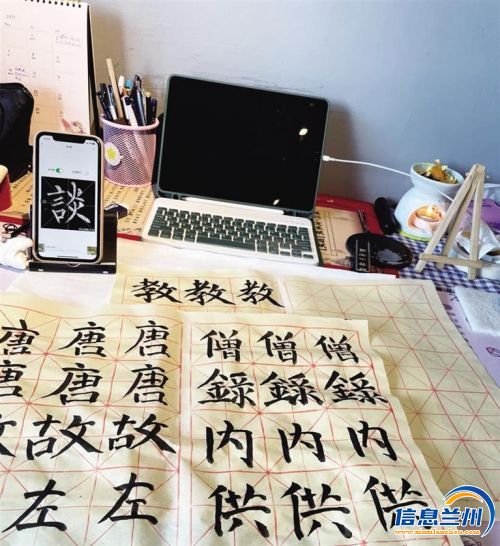 2021
談
教教教
唐唐唐
唐唐唐
故故故
左左
僧僧僧
録録録
内内内
供供供
信息兰州
www.xinxilanzhou.com